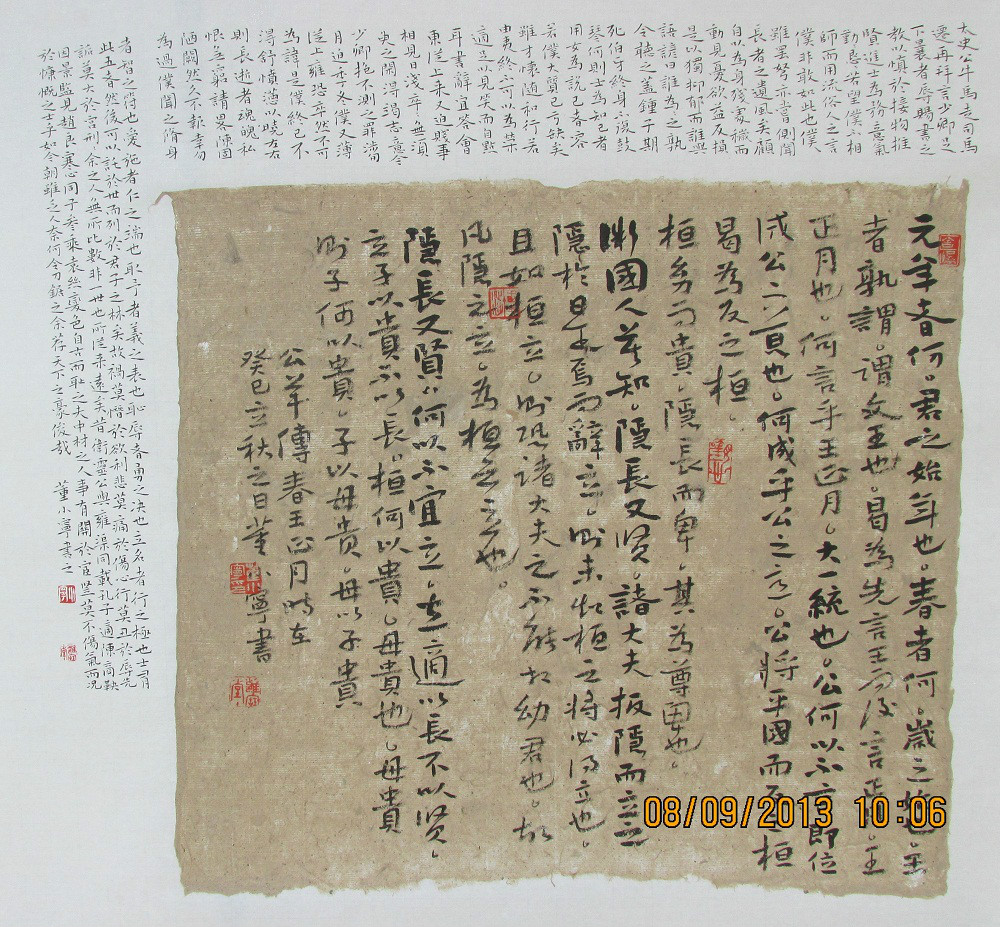 太史公牛馬走司馬
遷再拜言少卿足
下曩者辱賜書
教以慎於接物推
賢進士為務意氣
勤懇若望僕不相
師而用流俗人之言
僕非敢如此也僕
雖罷駑亦嘗側聞
長者之遺風矣顧
自以為身殘處穢而
動見尤欲益反損
是以獨抑郁而誰與
語諺曰誰為之孰
令聽之蓋鍾子期
死伯牙終身不復鼓
琴何則士為知己者
用女為說己者容
若僕大質已虧缺矣
雖才懷隨和行若
由夷終不可以為榮
適足以見笑而自點
耳書辭宜答會
東從上來又迫賤事
相見日淺卒卒無須
臾之閒得竭志意今
少卿抱不測之罪涉旬
月迫季冬僕又薄
從上雍恐卒然不可
為諱是僕終已不
得舒憤懣以曉左右
則長逝者魂魄私
恨無窮請略陳固
陋闕然久不報幸勿
為過僕聞之脩身
者智之符也愛施者仁之端也取予者義之表也恥辱者勇之決也立名者行之極也士有
此五者然後可以託於世而列於君子之林矣故禍莫憯於欲利悲莫痛於傷心行莫丑於辱先
詬莫大於宮刑刑余之人無所比數非一世也所從來遠矣昔衛靈公與雍渠同載孔子適陳商鞅
因景監見趙良寒心同子參乘袁絲變色自古而恥之夫中材之人事有關於宦豎莫不傷氣而況
於慷慨之士乎如今朝雖乏人奈何令刀鋸之余荐天下之豪俊哉 董小寧書之
元年者何。君之始年也。春者何。歲之始也。王
者孰謂。謂文王也。曷為先言王而後言正月。王
正月也。何言乎王正月。大一統也。公何以不言即位
成公之意也。何成乎公之意。公將平國而反之桓
曷為反之桓。
桓幼而貴。隱長而卑。其為尊卑也。
微國人莫知。隱長又賢。諸大夫扳隱而立之
隱於是焉而辭立。則未知桓之將必得立也。
且如桓立。則恐諸大夫之不能相幼君也。故
凡隱之立。為桓立之也。
隱長又賢。何以不宜立。立適以長不以賢。
立子以貴不以長。桓何以貴。母貴也。母貴
則子何以貴。子以母貴。母以子貴
公羊傳春王正月時在
癸巳立秋之日董小寧書
08/09/2013 10:06